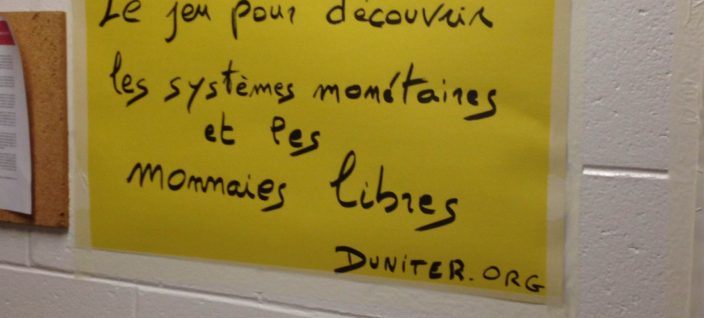 Le jeu pour découvrir
les systèmes monétaires
et les
monnaies libres
DUNITER.ORG